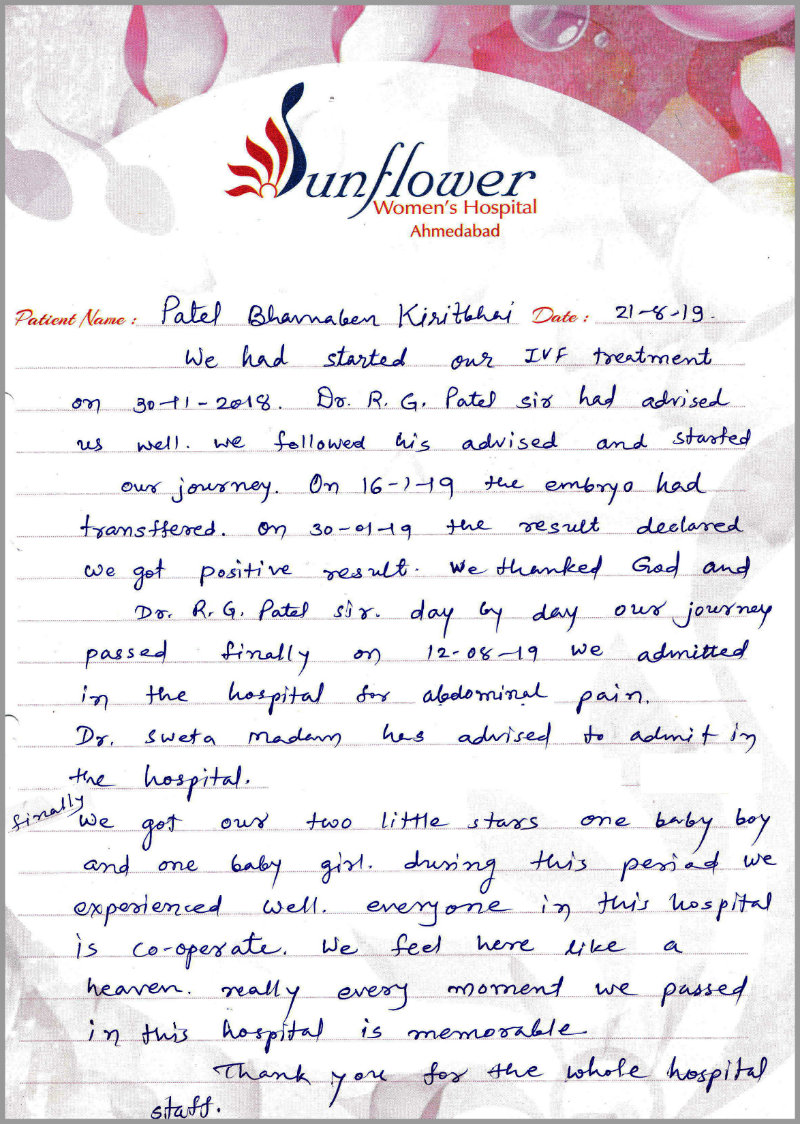 Sunflower
Women's Hospital
Ahmedabad
Patient Name : Patel Bhavnaben Kiritbhai Date : 21-8-19.
We had started our IVF treatment
on 30-11-2018. Dr. R. G. Patel sir had advised
us well. we followed his advised and started
our journey. On 16-1-19 the embryo had
transffered. on 30-01-19 the result declared
we got positive result. We thanked God and
Dr. R. G. Patel sir. day by day our journey
passed finally on 12-08-19 we admitted
in the hospital for abdominal pain.
Dr. Sweta madam has advised to admit in
the hospital.
finally we got our two little stars one baby boy
and one baby girl. during this period we
experienced well. everyone in this hospital
is co-operate. We feel here like a
heaven. really every moment we passed
in this hospital is memorable
Thank you for the whole hospital
staff.